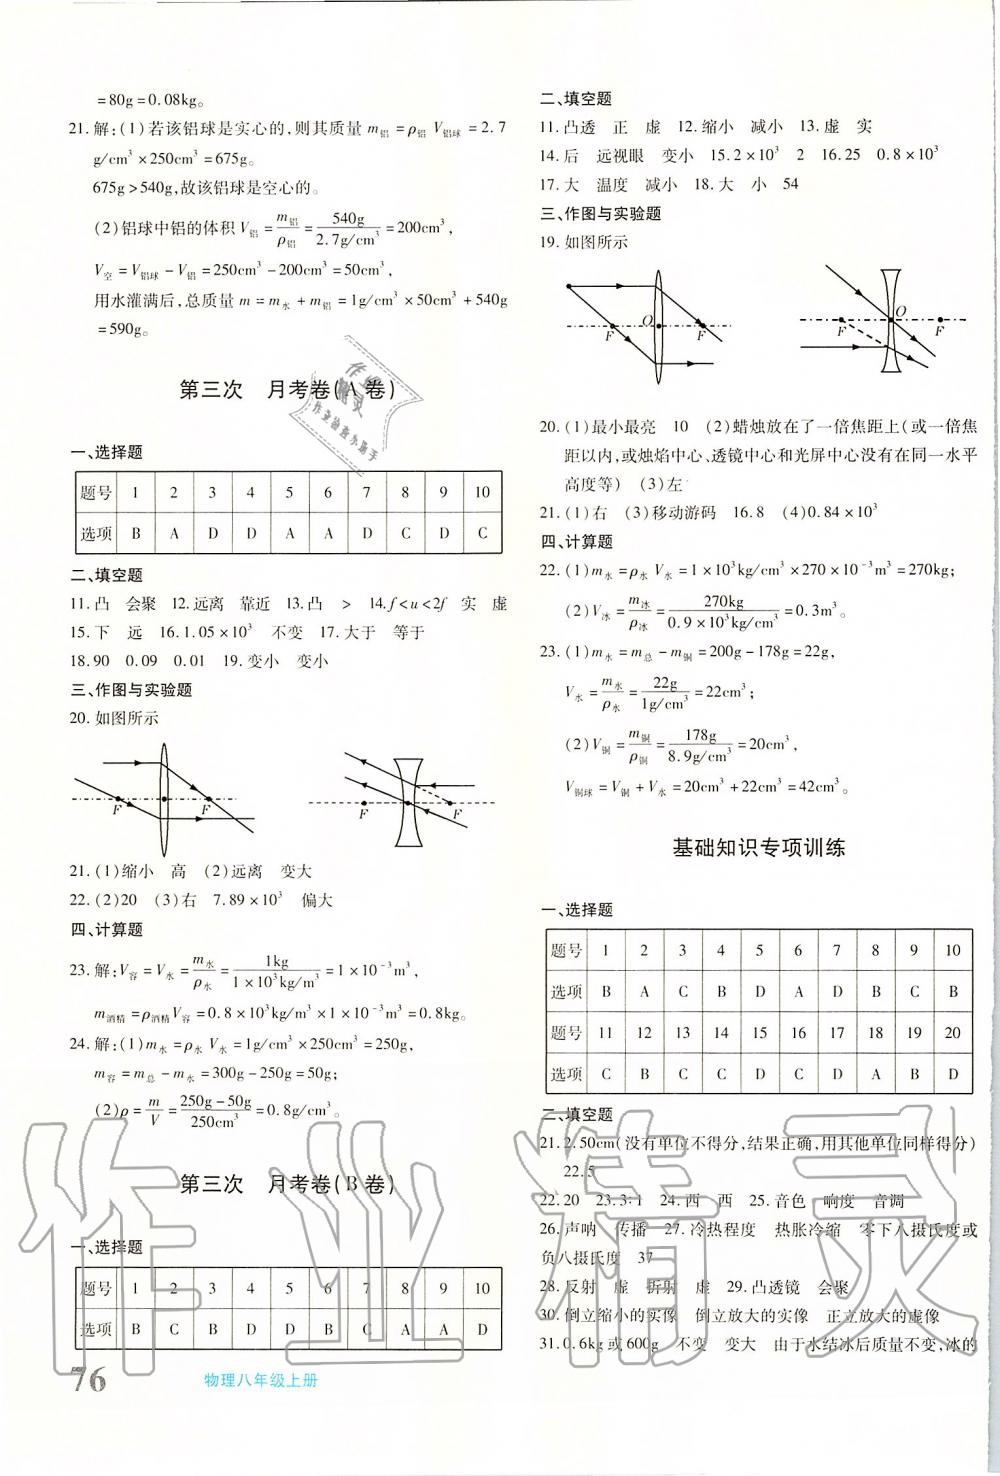 =80g=0.08kg。
21.解:(1)若该铝球是实心的,则其质量 m铝=ρ铝 V铝球=2.7
g/cm³×250cm³=675g。
675g>540g,故该铝球是空心的。
(2)铝球中铝的体积 V铝=m铝/ρ铝=540g/2.7g/cm³=200cm³,
V空=V铝球-V铝=250cm³-200cm³=50cm³,
用水灌满后,总质量 m=m水+m铝=1g/cm³×50cm³+540g
=590g。
第三次 月考卷(A卷)
一、选择题
题号 1 2 3 4 5 6 7 8 9 10
选项 B A D D A A D C D C
二、填空题
11.凸 会聚 12.远离 靠近 13.凸 > 14.f<u<2f 实 虚
15.下 远 16.1.05×10³ 不变 17.大于 等于
18.90 0.09 0.01 19.变小 变小
三、作图与实验题
20.如图所示
F F
F F
21.(1)缩小 高 (2)远离 变大
22.(2)20 (3)右 7.89×10³ 偏大
四、计算题
23.解:V容=V水=m水/ρ水=1kg/1×10³kg/m³=1×10⁻³m³,
m酒精=ρ酒精V容=0.8×10³kg/m³×1×10⁻³m³=0.8kg。
24.解:(1)m水=ρ水 V水=1g/cm³×250cm³=250g,
m容=m总-m水=300g-250g=50g;
(2)ρ=m/V=250g-50g/250cm³=0.8g/cm³。
第三次 月考卷(B卷)
一、选择题
题号 1 2 3 4 5 6 7 8 9 10
选项 B C B D D B C A A D
76
物理八年级上册
二、填空题
11.凸透 正 虚 12.缩小 减小 13.虚 实
14.后 远视眼 变小 15.2×10³ 2 16.25 0.8×10³
17.大 温度 减小 18.大 小 54
三、作图与实验题
19.如图所示
F O F
F O F
20.(1)最小最亮 10 (2)蜡烛放在了一倍焦距上(或一倍焦
距以内,或烛焰中心、透镜中心和光屏中心没有在同一水平
高度等) (3)左
21.(1)右 (3)移动游码 16.8 (4)0.84×10³
四、计算题
22.(1)m水=ρ水 V水=1×10³kg/cm³×270×10⁻³m³=270kg;
(2)V冰=m冰/ρ冰=270kg/0.9×10³kg/cm³=0.3m³。
23.(1)m水=m总-m铜=200g-178g=22g,
V水=m水/ρ水=22g/1g/cm³=22cm³;
(2)V铜=m铜/ρ铜=178g/8.9g/cm³=20cm³,
V铜球=V铜+V水=20cm³+22cm³=42cm³。
基础知识专项训练
一、选择题
题号 1 2 3 4 5 6 7 8 9 10
选项 B A C B D A D B C B
题号 11 12 13 14 15 16 17 18 19 20
选项 C B C C D C D A B D
二、填空题
21.2.50cm(没有单位不得分,结果正确,用其他单位同样得分)
22.5
22.20 23.3:1 24.西 西 25.音色 响度 音调
26.声呐 传播 27.冷热程度 热胀冷缩 零下八摄氏度或
负八摄氏度 37
28.反射 虚 折射 虚 29.凸透镜 会聚
30.倒立缩小的实像 倒立放大的实像 正立放大的虚像
31.0.6kg或600g 不变 变大 由于水结冰后质量不变,冰的
作业精灵